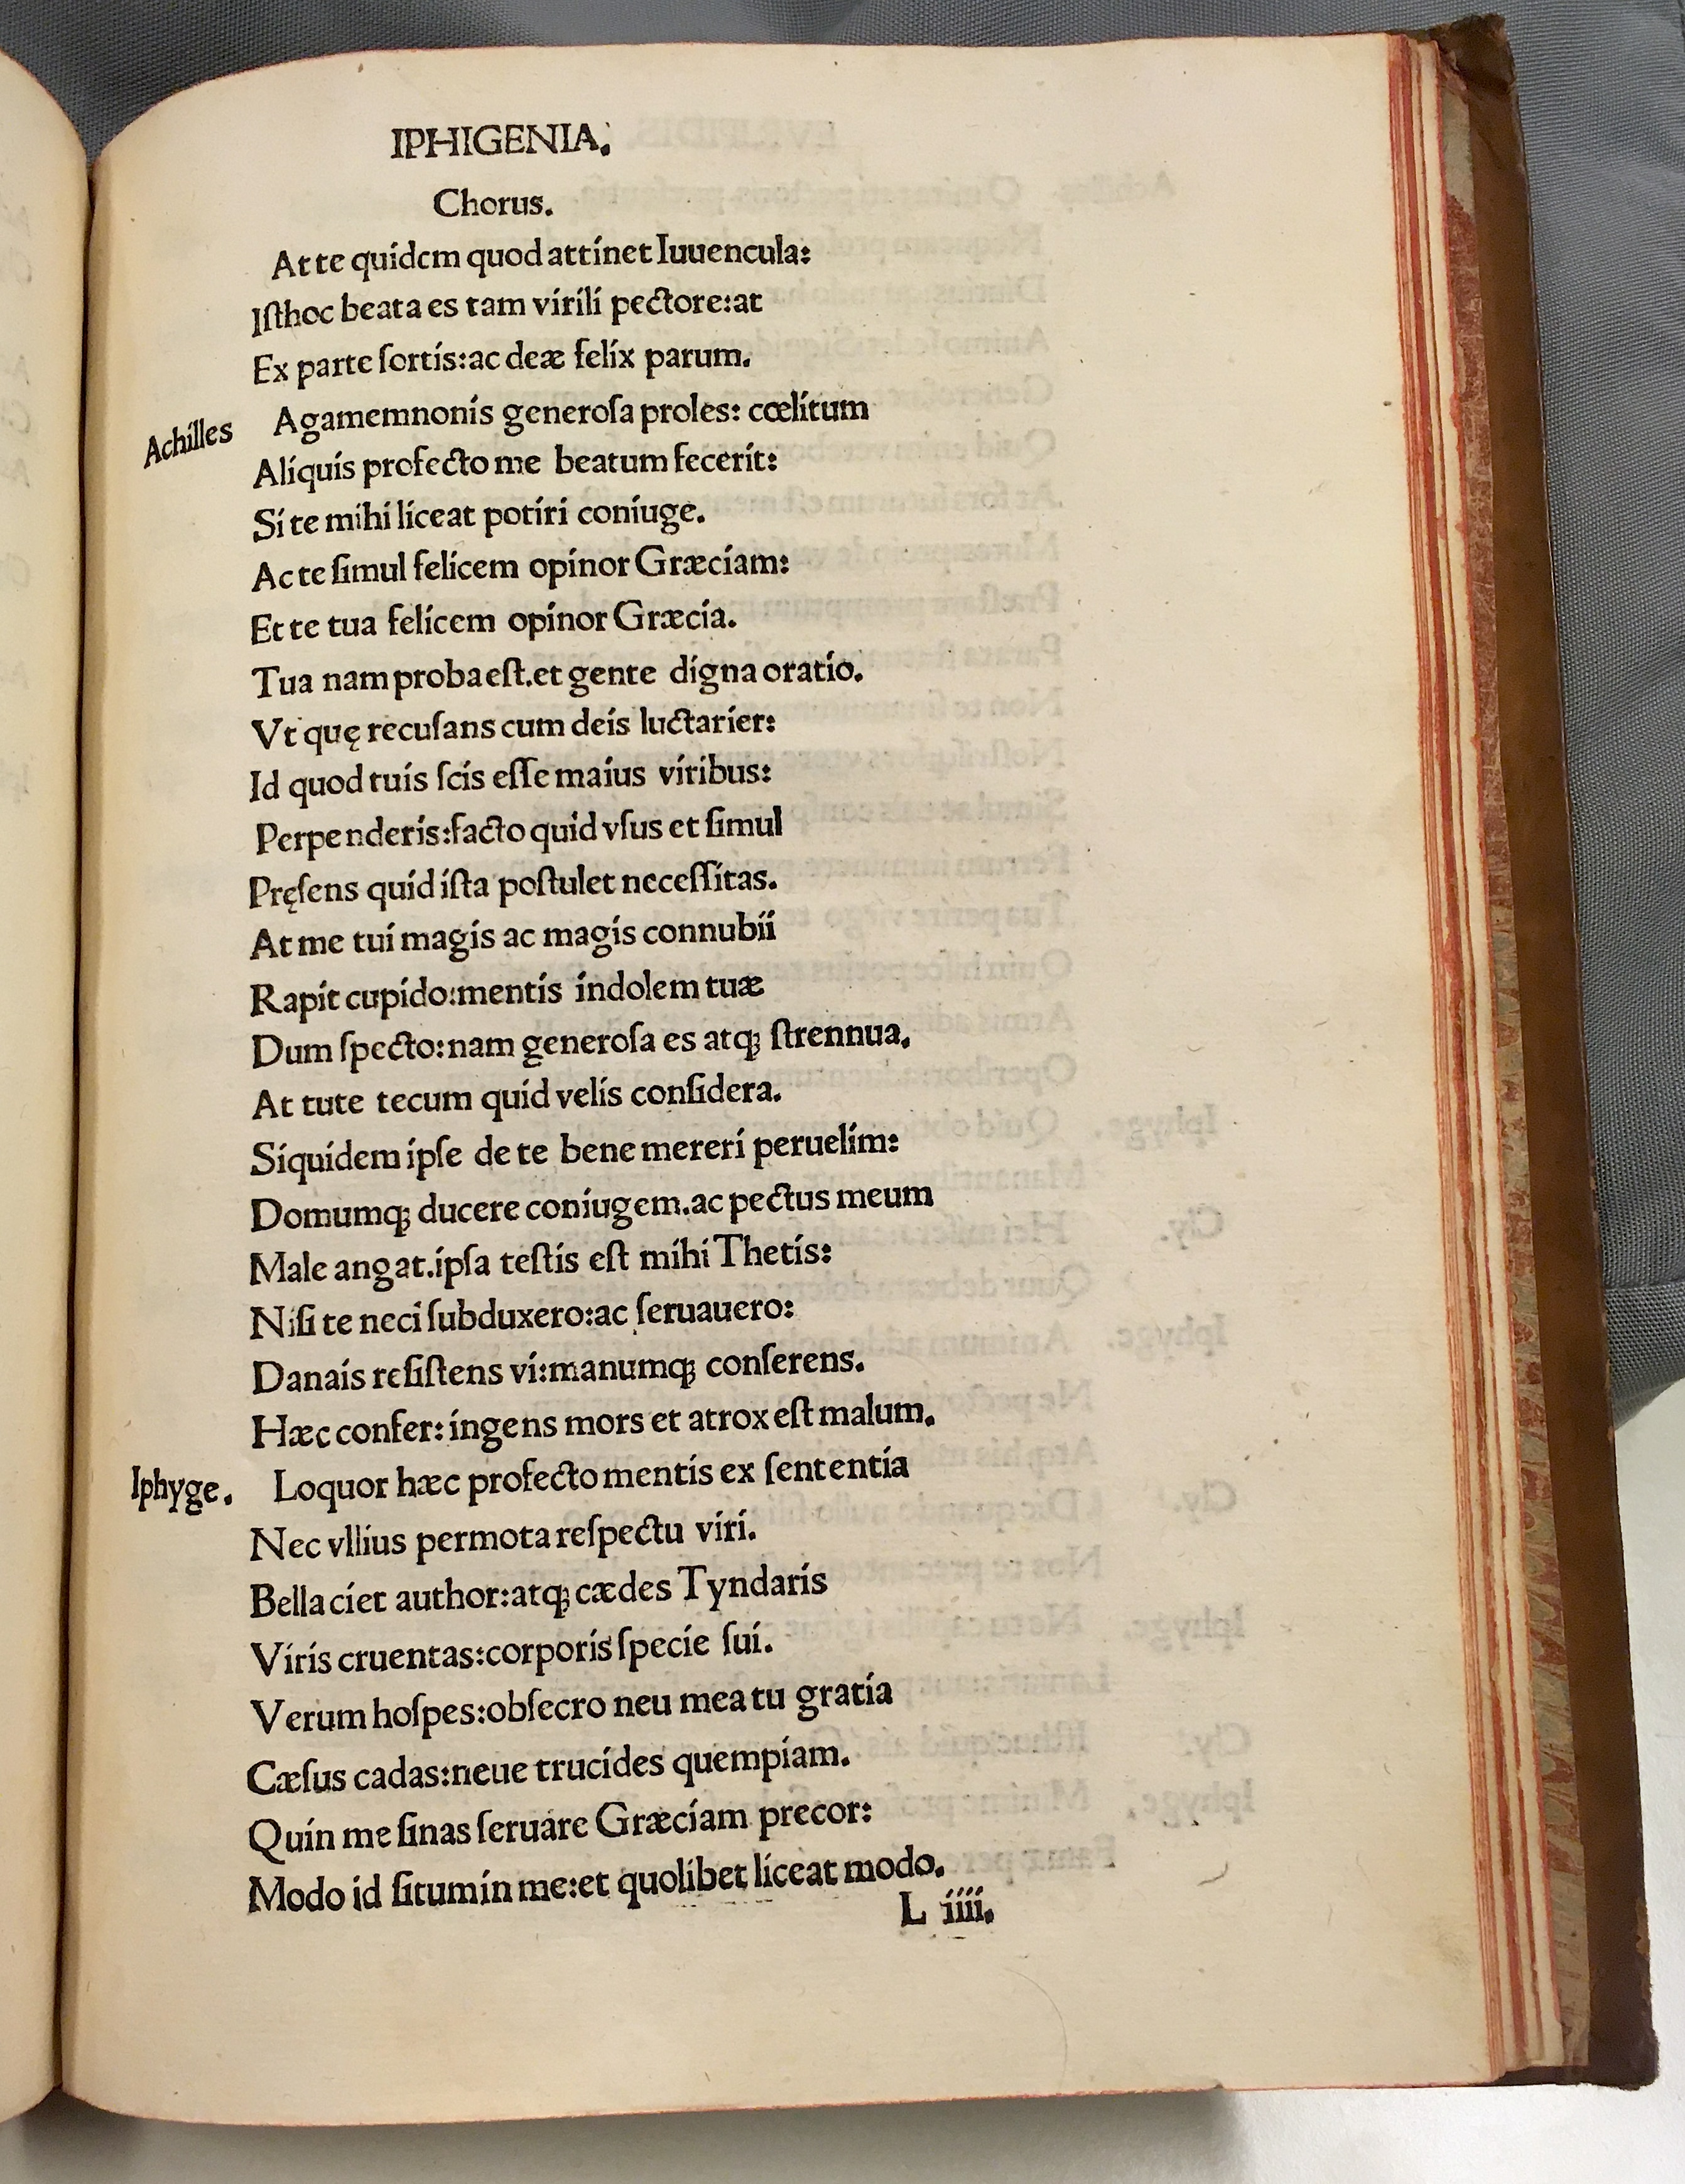 IPHIGENIA.
Chorus.
At te quidem quod attinet Iuuencula:
Iſthoc beata es tam virili pectore:at
Ex parte ſortis:ac deæ felix parum.
Achilles Agamemnonis generoſa proles: cœlitum
Aliquis profecto me beatum fecerit:
Si te mihi liceat potiri coniuge.
Ac te ſimul felicem opinor Græciam:
Et te tua felicem opinor Græcia.
Tua nam proba eſt.et gente digna oratio.
Vt quę recuſans cum deis luctarier:
Id quod tuis ſcis eſſe maius viribus:
Perpenderis:facto quid vſus et ſimul
Pręſens quid iſta poſtulet neceſſitas.
At me tui magis ac magis connubii
Rapit cupido:mentis indolem tuæ
Dum ſpecto:nam generoſa es atqꝫ ſtrennua.
At tute tecum quid velis conſidera.
Siquidem ipſe de te bene mereri peruelim:
Domumqꝫ ducere coniugem.ac pectus meum
Male angat.ipſa teſtis eſt mihi Thetis:
Niſi te neci ſubduxero:ac ſeruauero:
Danais reſiſtens vi:manumqꝫ conſerens.
Hæc confer:ingens mors et atrox eſt malum.
Iphyge. Loquor hæc profecto mentis ex ſententia
Nec vllius permota reſpectu viri.
Bella ciet author:atqꝫ cædes Tyndaris
Viris cruentas:corporis ſpecie ſui.
Verum hoſpes:obſecro neu mea tu gratia
Cæſus cadas:neue trucides quempiam.
Quin me ſinas ſeruare Græciam precor:
Modo id ſitum in me:et quolibet liceat modo.
L iiii.